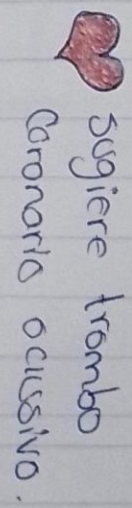 sugiere trombo
Coronario oclusivo.